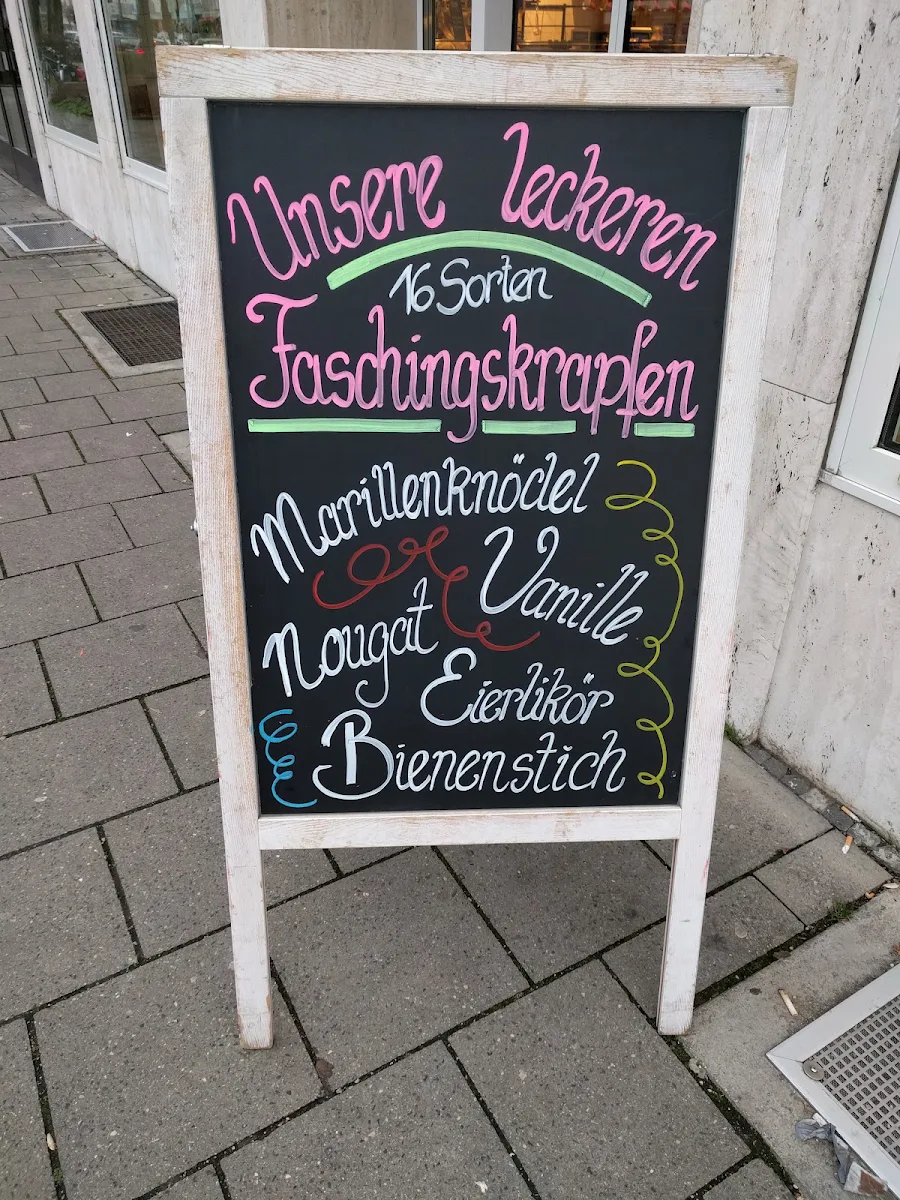 Unsere leckeren
16 Sorten
Faschingskrapfen
Marillenknödel
Vanille
Nougat
Eierlikör
Bienenstich